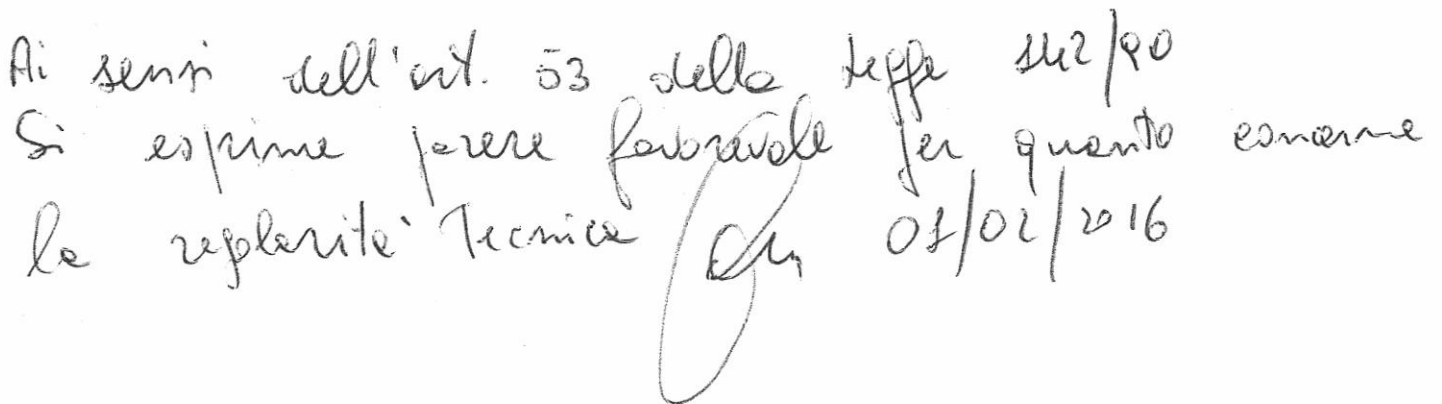 Ai sensi dell'art. 53 della legge 142/90
Si esprime parere favorevole per quanto concerne
la regolarità Tecnica 01/02/2016